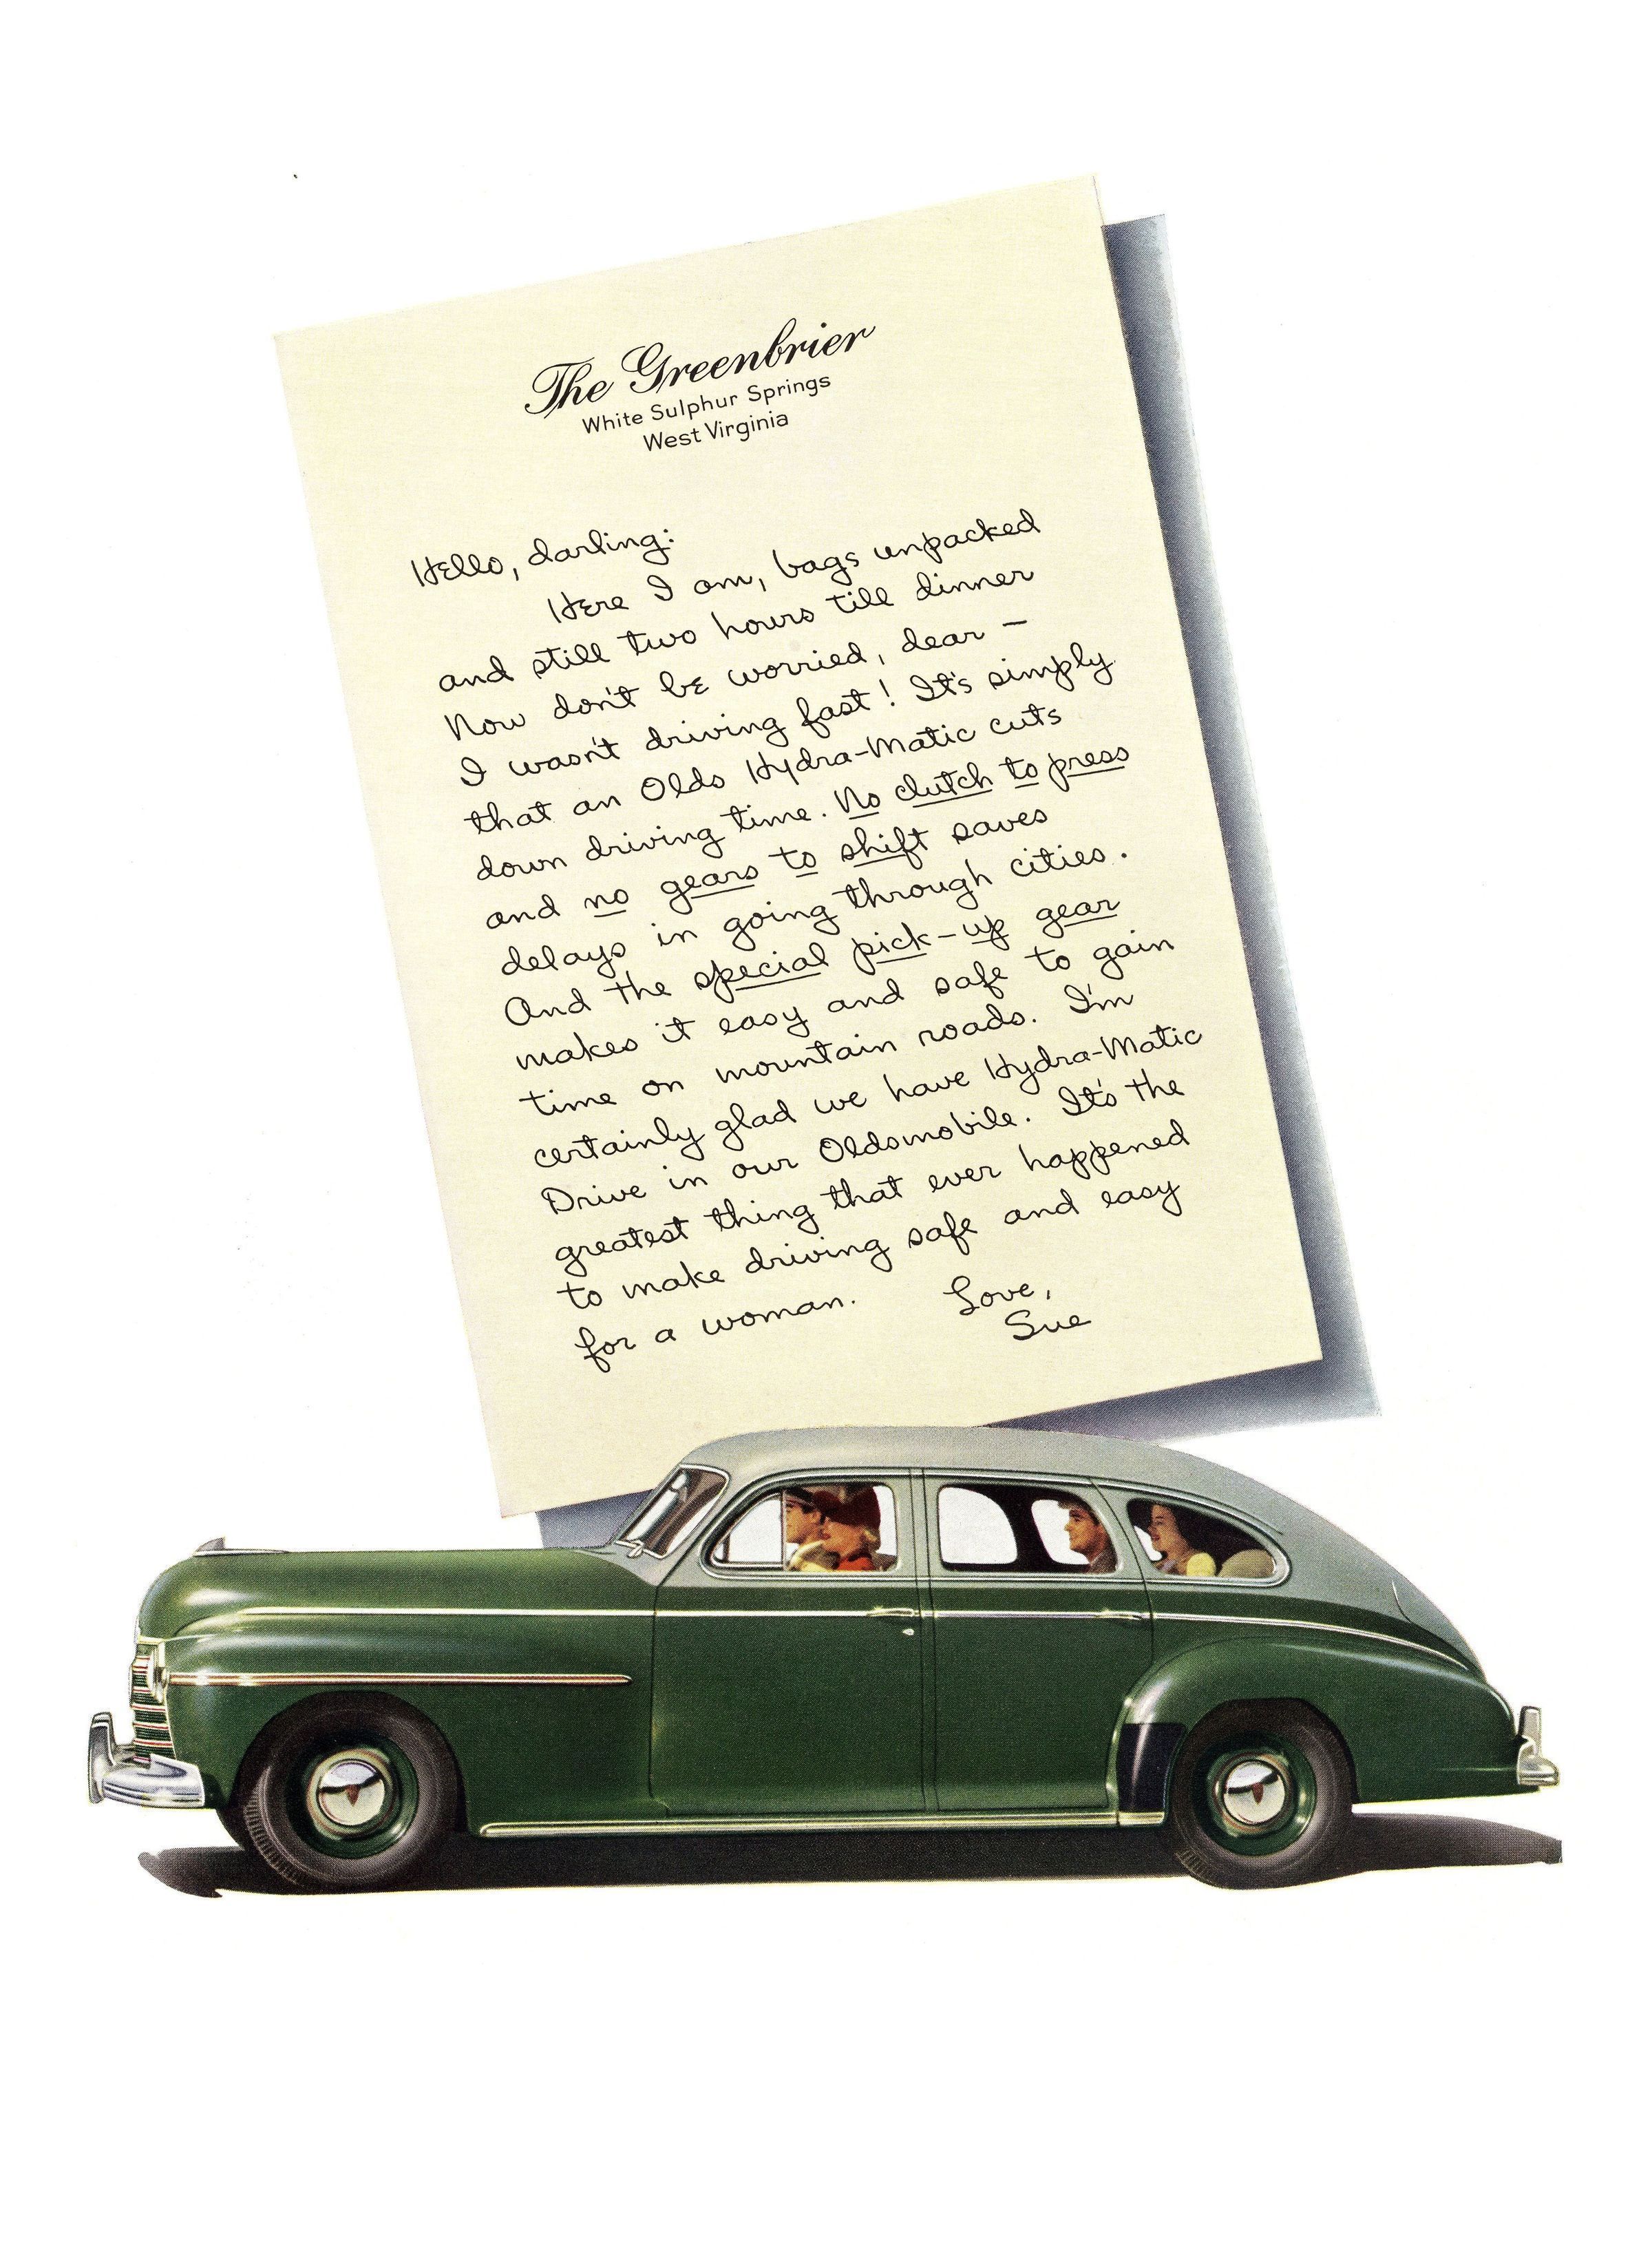 The Greenbrier
White Sulphur Springs
West Virginia
Hello, darling:
Here I am, bags unpacked
and still two hours till dinner
Now don't be worried, dear –
I wasn't driving fast! It's simply
that an Olds Hydra-Matic cuts
down driving time. No clutch to press
and no gears to shift saves
delays in going through cities.
And the special pick-up gear
makes it easy and safe to gain
time on mountain roads. I'm
certainly glad we have Hydra-Matic
Drive in our Oldsmobile. It's the
greatest thing that ever happened
to make driving safe and easy
for a woman.
Love,
Sue